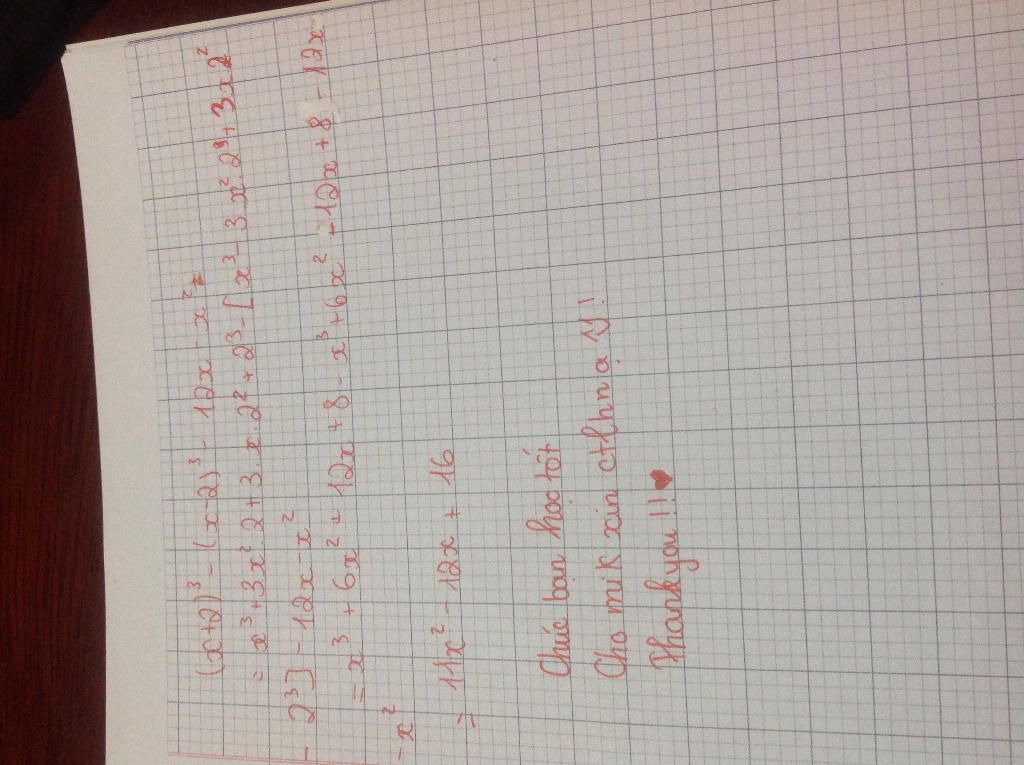 (x+2)³ - (x-2)³ - 12x - x² =
= x³ + 3x².2 + 3.x.2² + 2³ - [x³ - 3x².2 + 3x2²
- 2³] - 12x - x²
= x³ + 6x² + 12x + 8 - x³ + 6x² - 12x + 8 - 12x
- x²
= 11x² - 12x + 16
Chúc bạn học tốt
Cho mik xin ctlhnạ !
Thankyou !! ♥